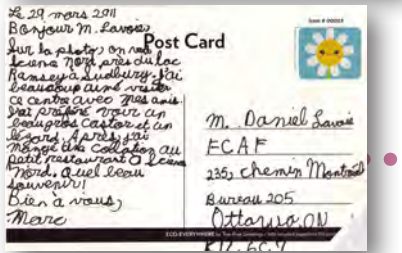 Le 29 mars 2011
Bonjour M. Lavoie,
Sur la photo, on voit
Science Nord, près du lac
Ramsey à Sudbury. J'ai
beaucoup aimé visiter
ce centre avec mes amis.
J'ai préféré voir un
beau gros castor et un
lézard. Après, j'ai
mangé une collation au
petit restaurant à Science
Nord. Quel beau
souvenir!
Bien à vous,
Marc
Post Card
M. Daniel Lavoie
FCAF
235, chemin Montréal
Bureau 205
Ottawa, ON
K1L 6C7
ECO-EVERYWHERE